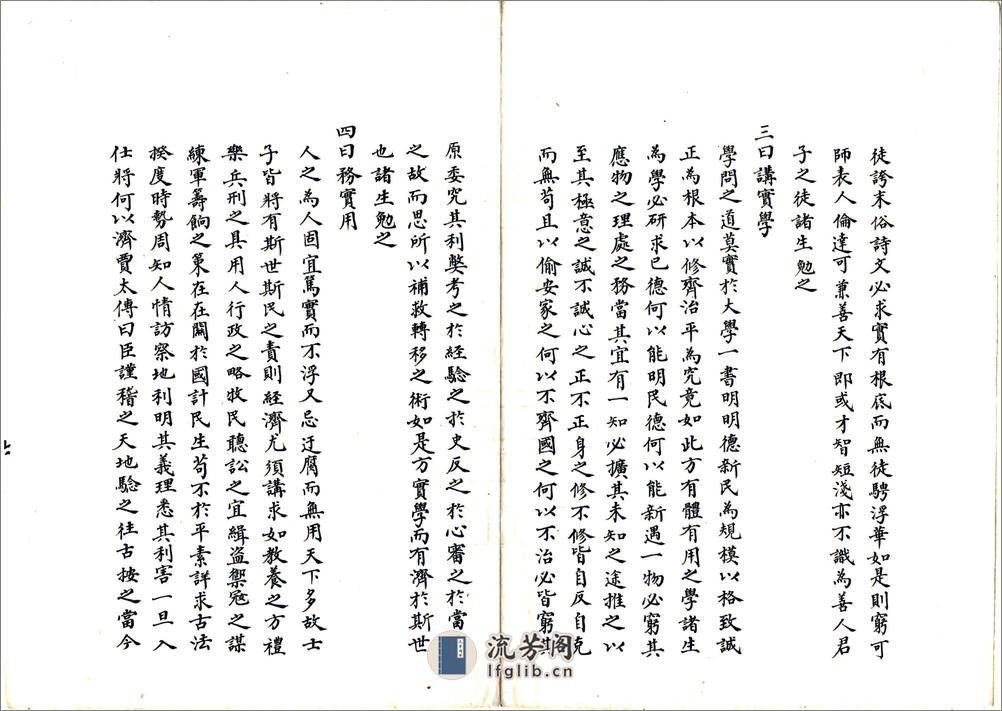 徒誇末俗詩文必求實有根底而無徒騁浮華如是則窮可
師表人倫達可兼善天下即或才智短淺亦不識為善人君
子之徒諸生勉之
三曰講實學
學問之道莫實於大學一書明明德新民為規模以格致誠
正為根本以修齊治平為究竟如此方有體有用之學諸生
為學必研求已德何以能明民德何以能新遇一物必窮其
應物之理處之務當其宜有一知必擴其未知之途推之以
至其極意之誠不誠心之正不正身之修不修皆自反自克
而無苟且以偷安家之何以不齊國之何以不治必皆窮其
原委究其利獘考之於経驗之於史反之於心審之於當
之故而思所以補救轉移之術如是方實學而有濟於斯世
也諸生勉之
四曰務實用
人之為人固宜篤實而不浮又忌迂腐而無用天下多故士
子皆將有斯世斯民之責則經濟尤須講求如教養之方禮
樂兵刑之具用人行政之略牧民聽訟之宜緝盜禦寇之謀
練軍籌餉之策在在關於國計民生苟不於平素詳求古法
揆度時勢周知人情訪察地利明其義理悉其利害一旦入
仕將何以濟賈太傅曰臣謹稽之天地驗之往古按之當今
流芳阁
lfglib.cn